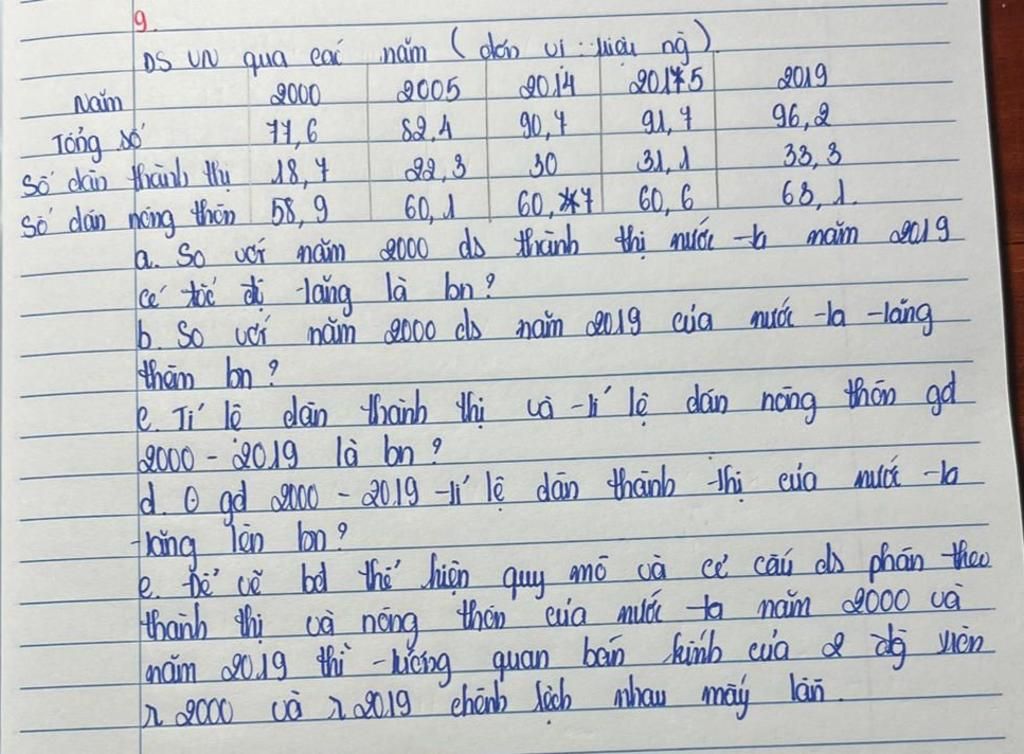 9.
DS VN qua các năm (đơn vị: triệu ng)
Năm 2000 2005 2014 2015 2019
Tổng số 77,6 82,4 90,7 91,7 96,2
Số dân thành thị 18,7 22,3 30 31,1 33,3
Số dân nông thôn 58,9 60,1 60,7 60,6 63,1.
a. So với năm 2000 ds thành thị nước ta năm 2019
có tốc độ tăng là bn?
b. So với năm 2000 ds năm 2019 của nước ta tăng
thêm bn?
c. Tỉ lệ dân thành thị và tỉ lệ dân nông thôn gđ
2000 - 2019 là bn?
d. Ở gđ 2000 - 2019 tỉ lệ dân thành thị của nước ta
tăng lên bn?
e. Để vẽ bđ thể hiện quy mô và cơ cấu ds phân theo
thành thị và nông thôn của nước ta năm 2000 và
năm 2019 thì tương quan bán kính của 2 đg tròn
r 2000 và r 2019 chênh lệch nhau mấy lần.